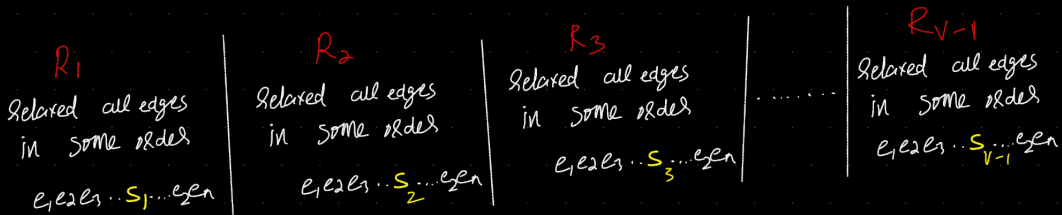 R1
Relaxed all edges
in some order
e1e2e3..S1...ezen
R2
Relaxed all edges
in some order
e1e2e3..S2...ezen
R3
Relaxed all edges
in some order
e1e2e3..S3...ezen
.........
RV-1
Relaxed all edges
in some order
e1e2e3..SV-1...ezen